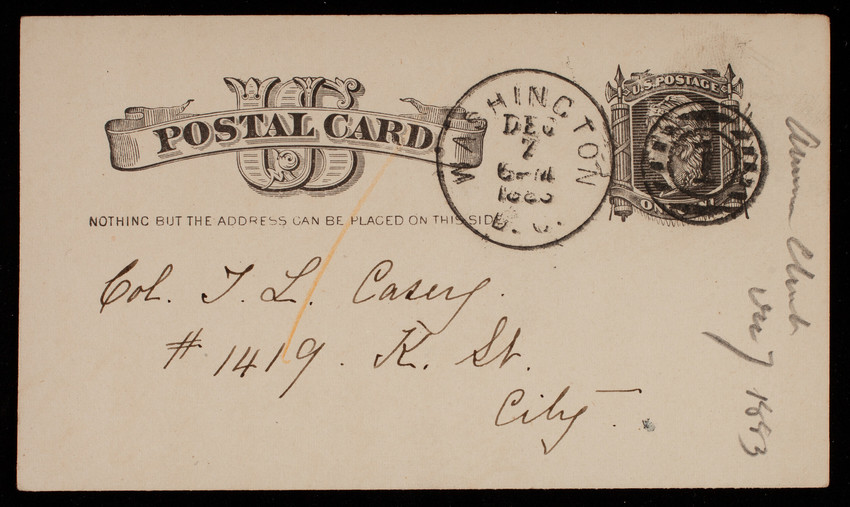 US
POSTAL CARD
NOTHING BUT THE ADDRESS CAN BE PLACED ON THIS SIDE.
WASHINGTON
DEC
7
1883
D. C.
U.S. POSTAGE
ONE CENT
Col. T. L. Casey.
# 1419. K. St.
City.
Club
Dec 7 1883